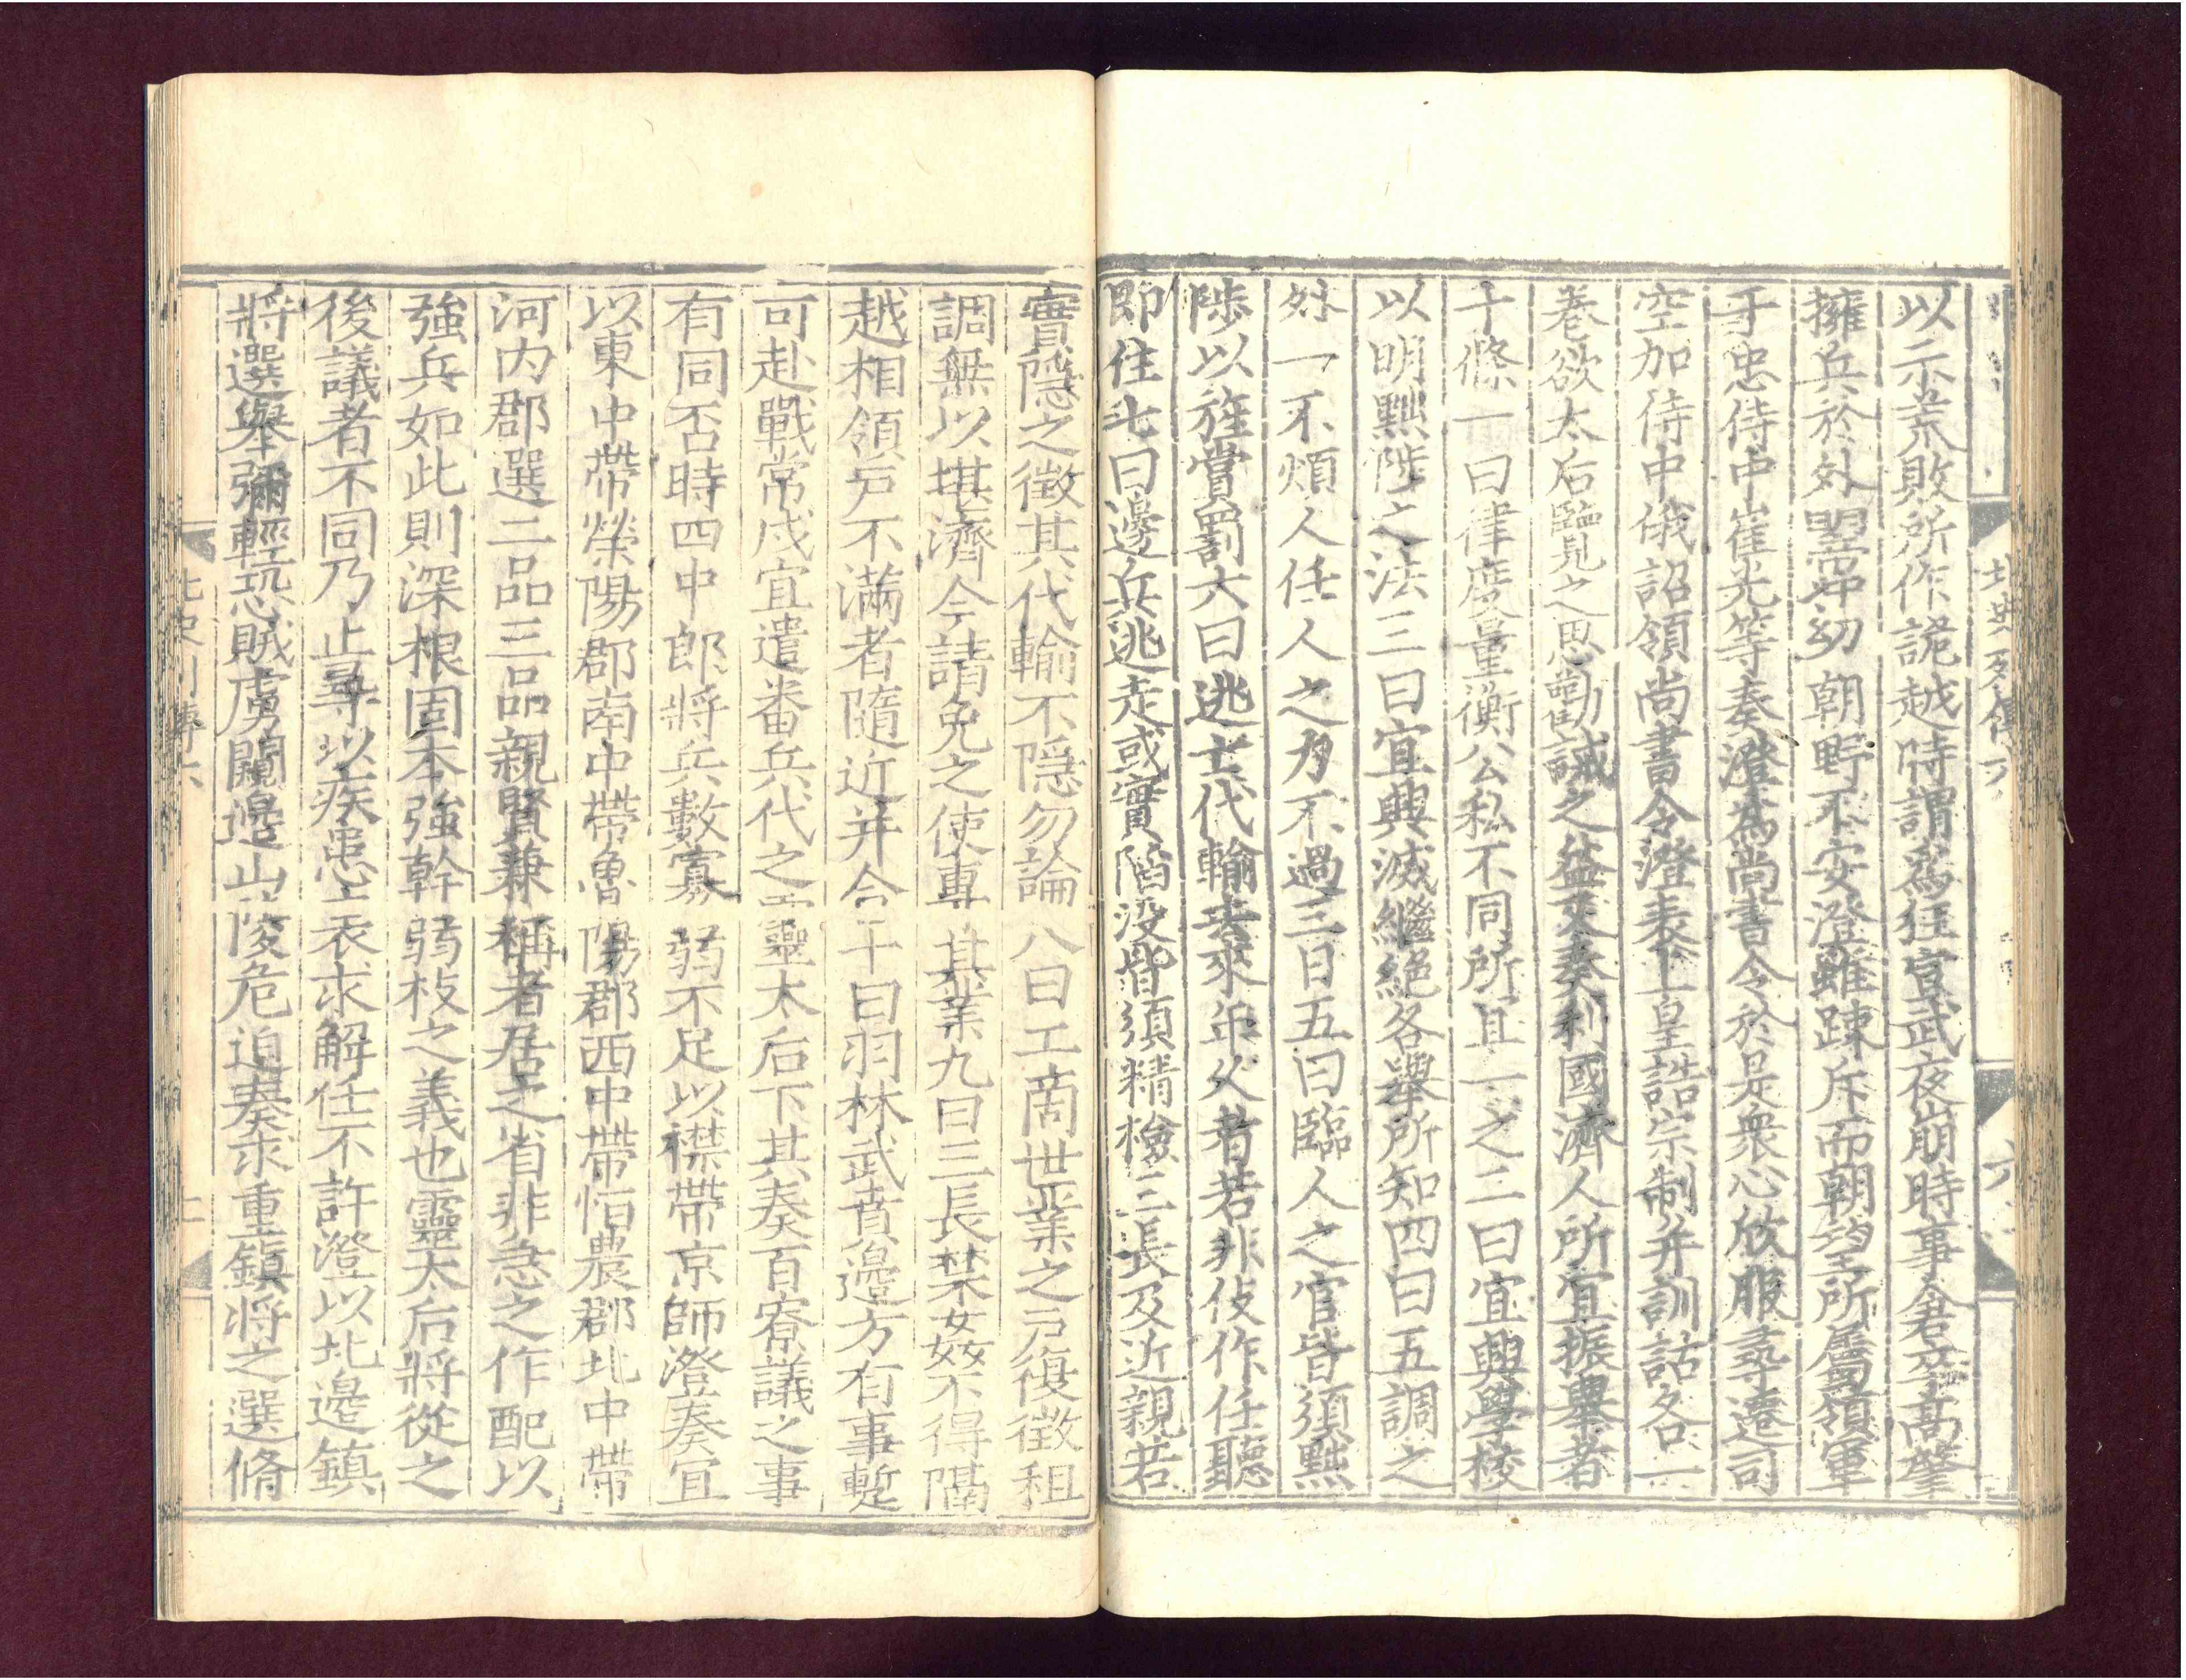 北史列傳六
六
以示荒敗所作詭越時謂爲狂宣武夜崩時事倉卒高肇
擁兵於外明帝沖幼朝野不安澄雖踈斥而朝望所屬領軍
于忠侍中崔光等奏澄爲尚書令於是衆心欣服尋遷司
空加侍中俄詔領尚書令澄表上皇誥宗制幷訓詁各一
卷欲太后覽之思勸誡之益又奏利國濟人所宜振舉者
十條一曰律度量衡公私不同所宜一之二曰宜興學校
以明黜陟之法三曰宜興滅繼絕各舉所知四曰五調之
外一不煩人任人之力不過三日五曰臨人之官皆須黜
陟以旌賞罰六曰逃亡代輸去來年久者若非伎作任聽
即住七曰邊兵逃走或實陷沒皆須精檢三長及近親若
實隱之徵其代輸不隱勿論八曰工商世業之戶復徵租
調無以堪濟今請免之使專其業九曰三長禁姦不得隔
越相領戶不滿者隨近并合十曰羽林武賁邊方有事暫
可赴戰常戍宜遣番兵代之靈太后下其奏百寮議之事
有同否時四中郎將兵數寡弱不足以襟帶京師澄奏宜
以東中帶滎陽郡南中帶魯陽郡西中帶恒農郡北中帶
河內郡選二品三品親賢兼稱者居之省非急之作配以
強兵如此則深根固本強幹弱枝之義也靈太后將從之
後議者不同乃止尋以疾患上表求解任不許澄以北邊鎮
將選舉彌輕恐賊虜闚邊山陵危迫奏求重鎮將之選脩
北史列傳六